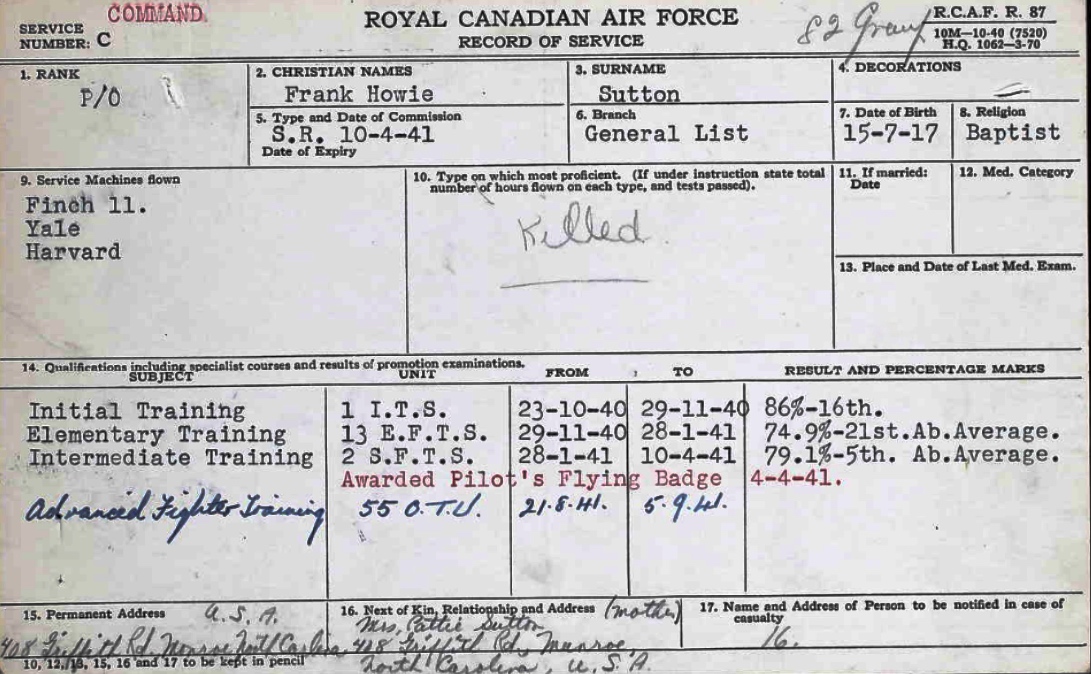 COMMAND.
SERVICE
NUMBER: C
ROYAL CANADIAN AIR FORCE
RECORD OF SERVICE
82 Group
R.C.A.F. R. 87
10M—10-40 (7520)
H.Q. 1062—3-70
1. RANK
P/O
2. CHRISTIAN NAMES
Frank Howie
3. SURNAME
Sutton
4. DECORATIONS
5. Type and Date of Commission
S.R. 10-4-41
Date of Expiry
6. Branch
General List
7. Date of Birth
15-7-17
8. Religion
Baptist
9. Service Machines flown
Finch 11.
Yale
Harvard
10. Type on which most proficient. (If under instruction state total
number of hours flown on each type, and tests passed).
Killed
11. If married:
Date
12. Med. Category
13. Place and Date of Last Med. Exam.
14. Qualifications including specialist courses and results of promotion examinations.
SUBJECT UNIT FROM TO RESULT AND PERCENTAGE MARKS
Initial Training 1 I.T.S. 23-10-40 29-11-40 86%-16th.
Elementary Training 13 E.F.T.S. 29-11-40 28-1-41 74.9%-21st.Ab.Average.
Intermediate Training 2 S.F.T.S. 28-1-41 10-4-41 79.1%-5th. Ab.Average.
Awarded Pilot's Flying Badge 4-4-41.
Advanced Fighter Training 55 O.T.U. 21.8.41. 5.9.41.
15. Permanent Address U.S.A.
408 Griffith Rd, Monroe, North Carolina
16. Next of Kin, Relationship and Address (mother)
Mrs. Pattie Sutton
408 Griffith Rd, Monroe,
North Carolina, U.S.A.
17. Name and Address of Person to be notified in case of
casualty
16.
10, 12, 13, 15, 16 and 17 to be kept in pencil